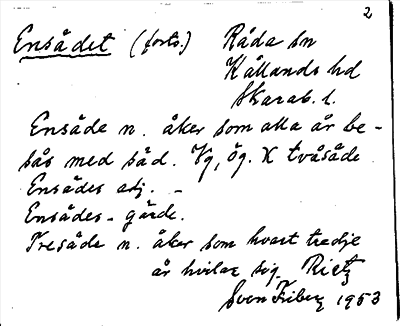 2
Ensådet (forts.) Råda sn
Kållands hd
Skarab. l.
Ensåde n. åker som alla år be-
sås med säd. Vg, Ög. X tvåsåde
Ensådes adj. -
Ensådes-gärde.
Tresåde n. åker som hvart tredje
år hvilar sig. Rietz
Sven Friberg 1953